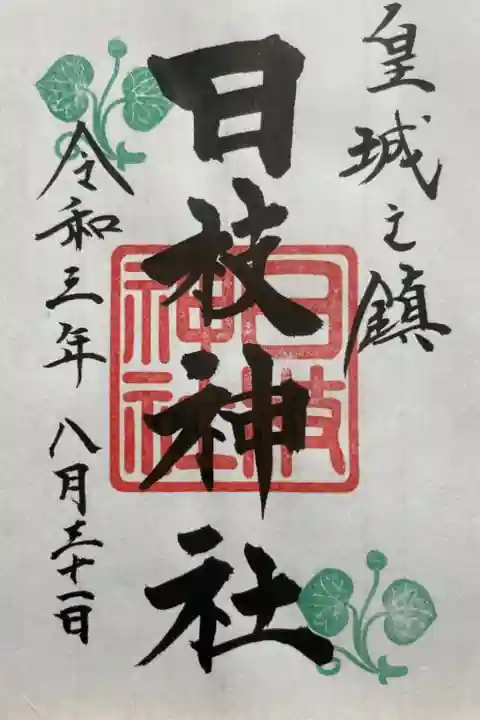 皇城之鎮
日枝神社
日枝
神社
令和三年 八月三十一日